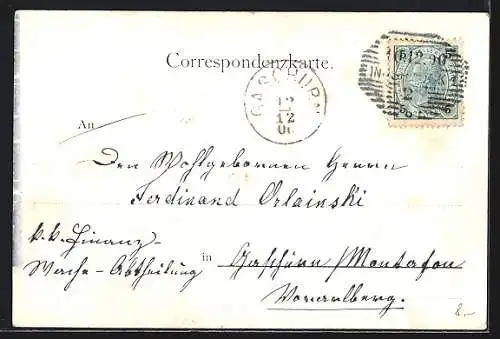 Correspondenzkarte.
GASCHURN
12
12
An
Den Wohlgebornen Herrn
Ferdinand Orlainski
k.k. Finanz-
Wache-Abtheilung
in Gaschurn/Montafon
Vorarlberg.